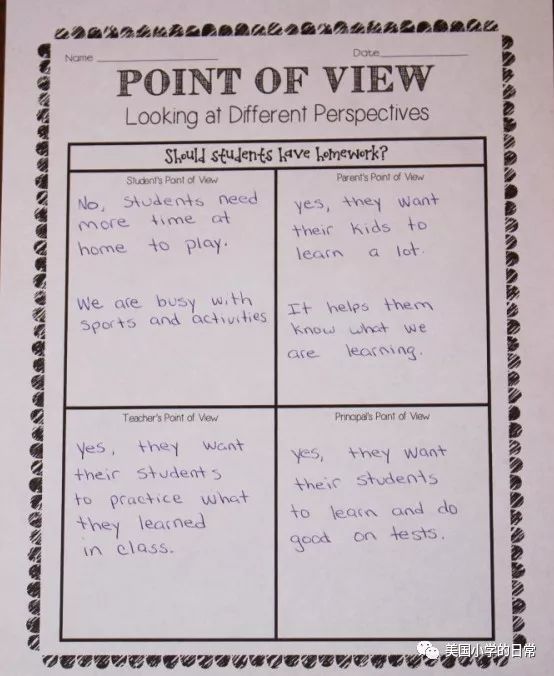 Name
Date
POINT OF VIEW
Looking at Different Perspectives
Should students have homework?
Student's Point of View
No, students need
more time at
home to play.
We are busy with
sports and activities
Parent's Point of View
yes, they want
their kids to
learn a lot.
It helps them
know what we
are learning.
Teacher's Point of View
yes, they want
their students
to practice what
they learned
in class.
Principal's Point of View
yes, they want
their students
to learn and do
good on tests.
美国小学的日常